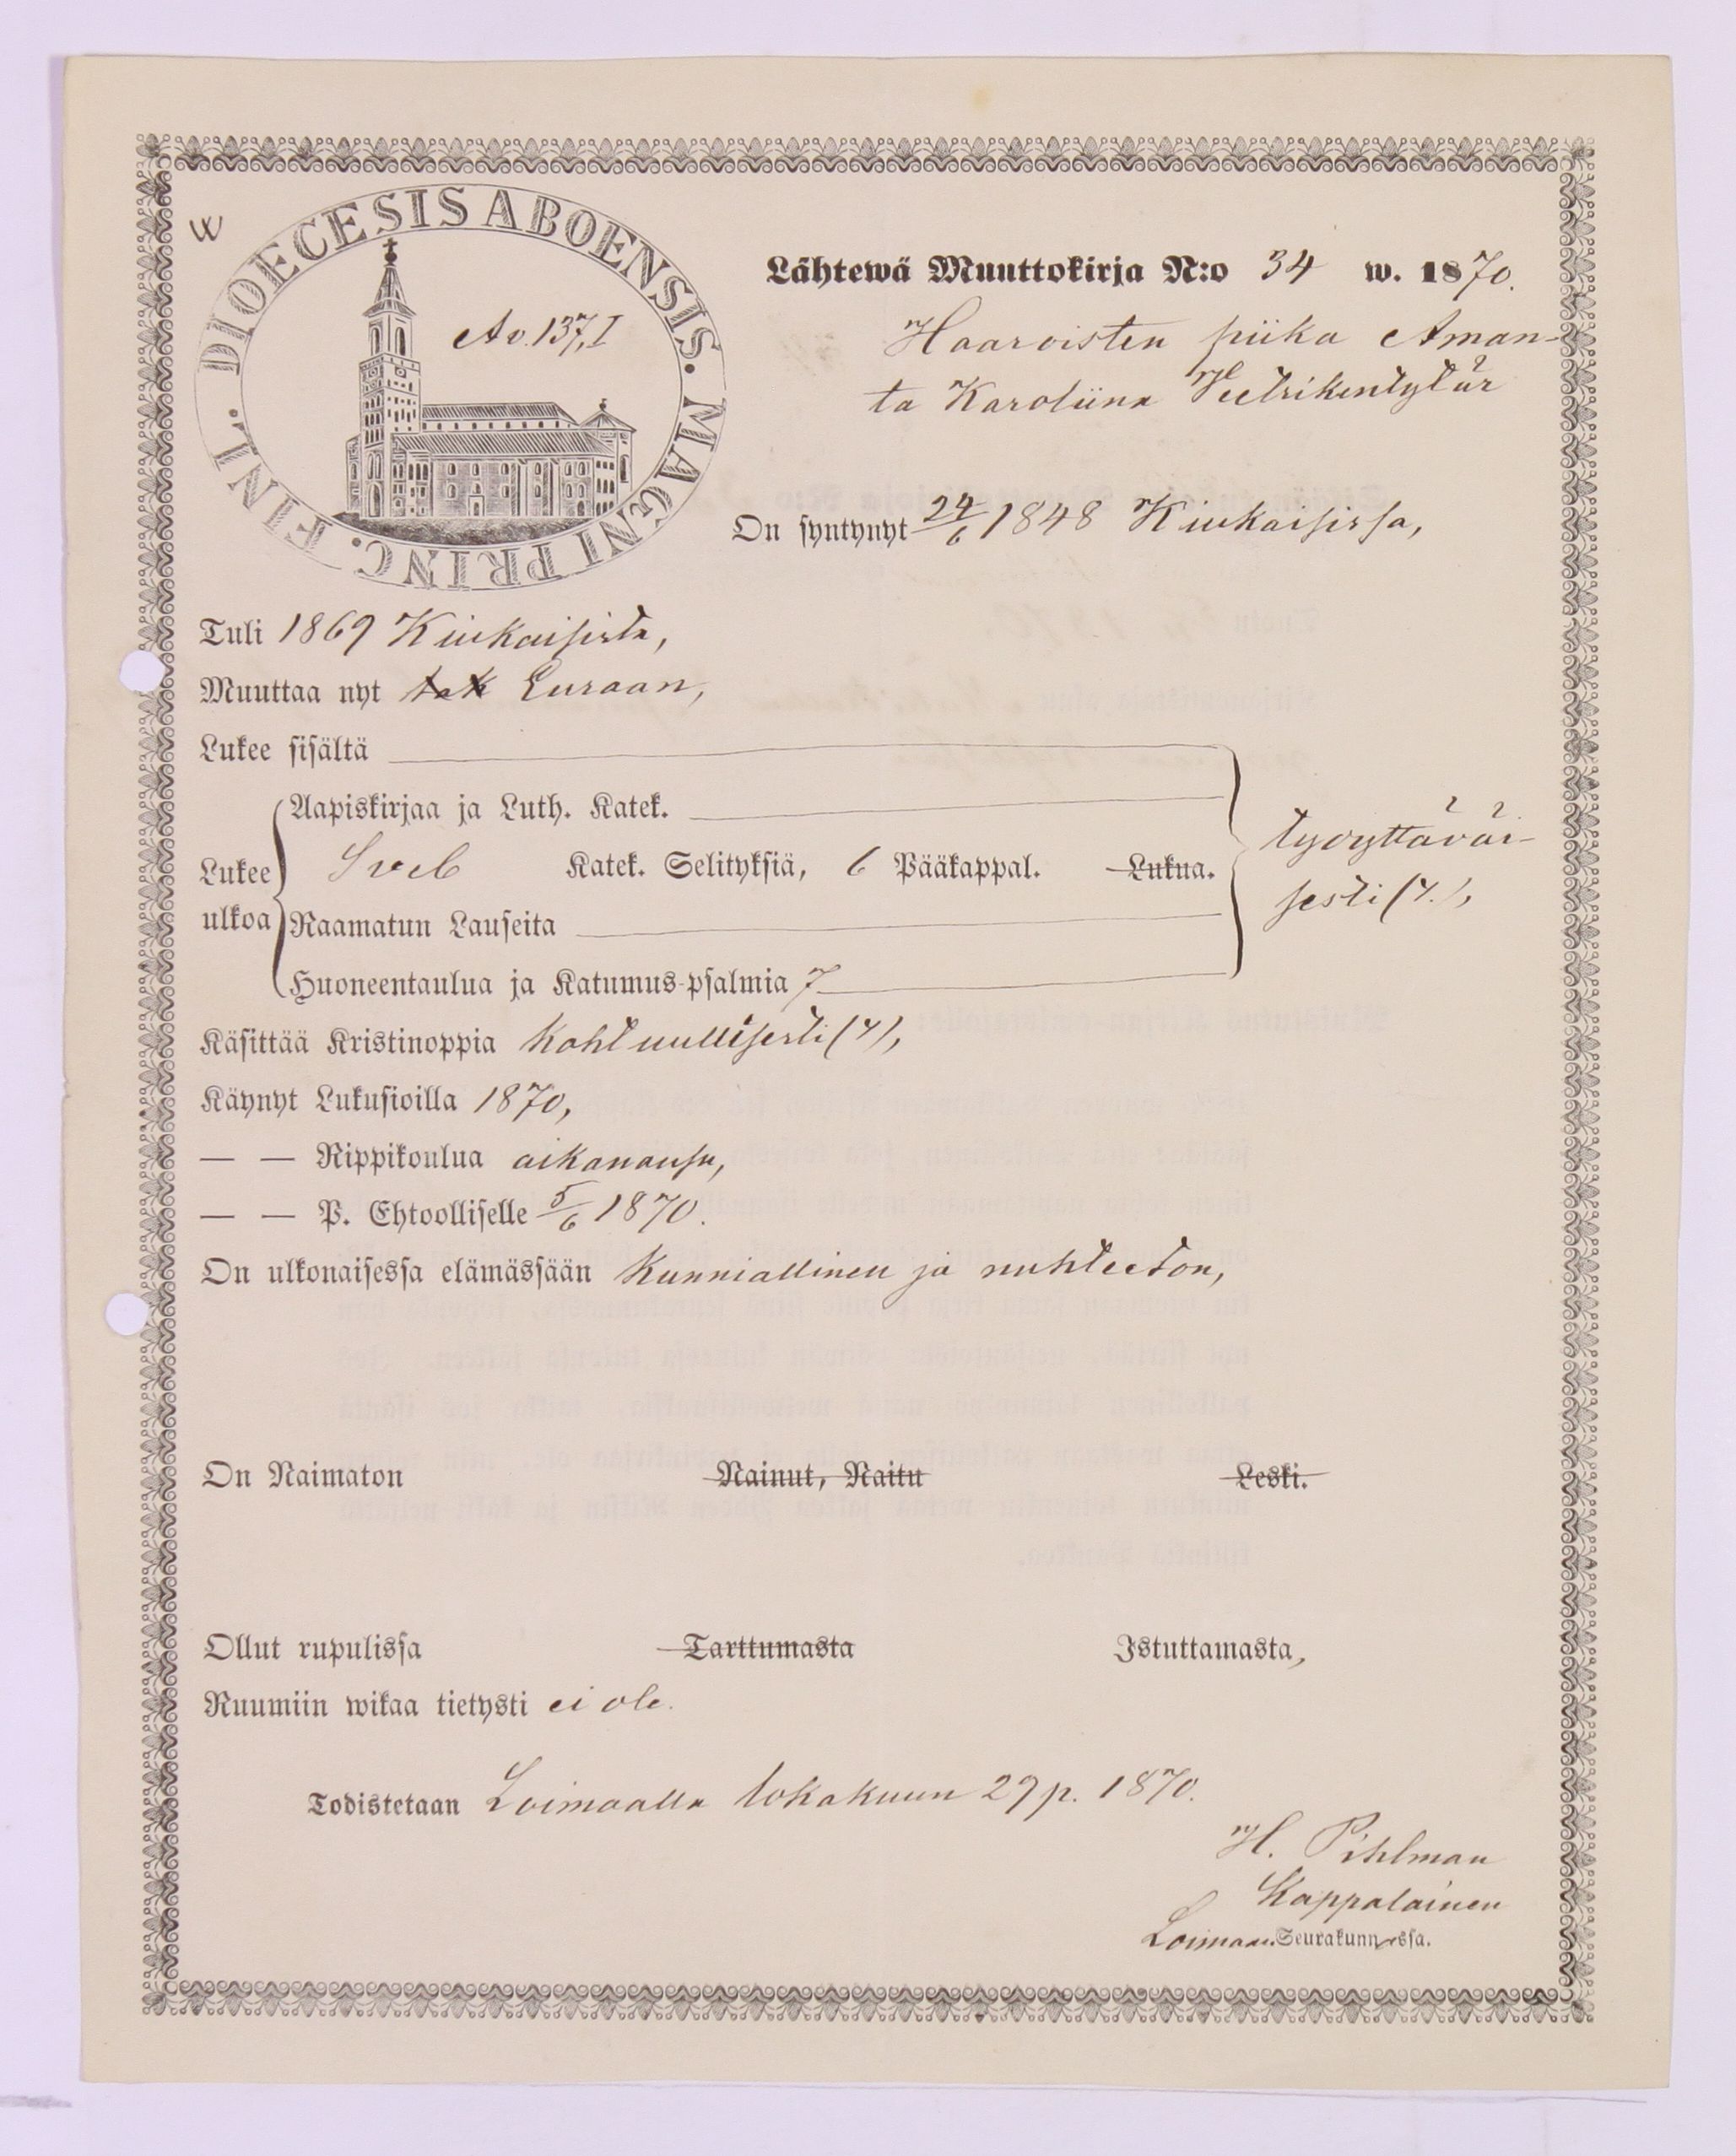 W
DIOECESIS ABOENSIS. MAGNI PRINC. FINL.
Av. 137, I
Lähtewä Muuttokirja N:o 34 w. 1870.
Haaroisten piika Aman-
ta Karoliina Heetrikintytär
On syntynyt 24/6 1848 Kiukaisissa,
Tuli 1869 Kiukaisista,
Muuttaa nyt tak Euraan,
Lukee sisältä
Aapiskirjaa ja Luth. Katek.
Lukee ulkoa Sveb Katek. Selityksiä, 6 Pääkappal. Lukua.
tyydyttäväi-
sesti (4.),
Raamatun Lauseita
Huoneentaulua ja Katumus-psalmia 7
Käsittää Kristinoppia kohtuullisesti (4),
Käynyt Lukusioilla 1870,
— — Rippikoulua aikanansa,
— — P. Ehtoolliselle 5/6 1870.
On ulkonaisessa elämässään kunniallinen ja nuhteeton,
On Naimaton Nainut, Naitu Leski.
Ollut rupulissa Tarttumasta Istuttamasta,
Ruumiin wikaa tietysti ei ole.
Todistetaan Loimaalla lokakuun 29 p. 1870.
H. Pihlman
Kappalainen
Loimaan Seurakunnassa.